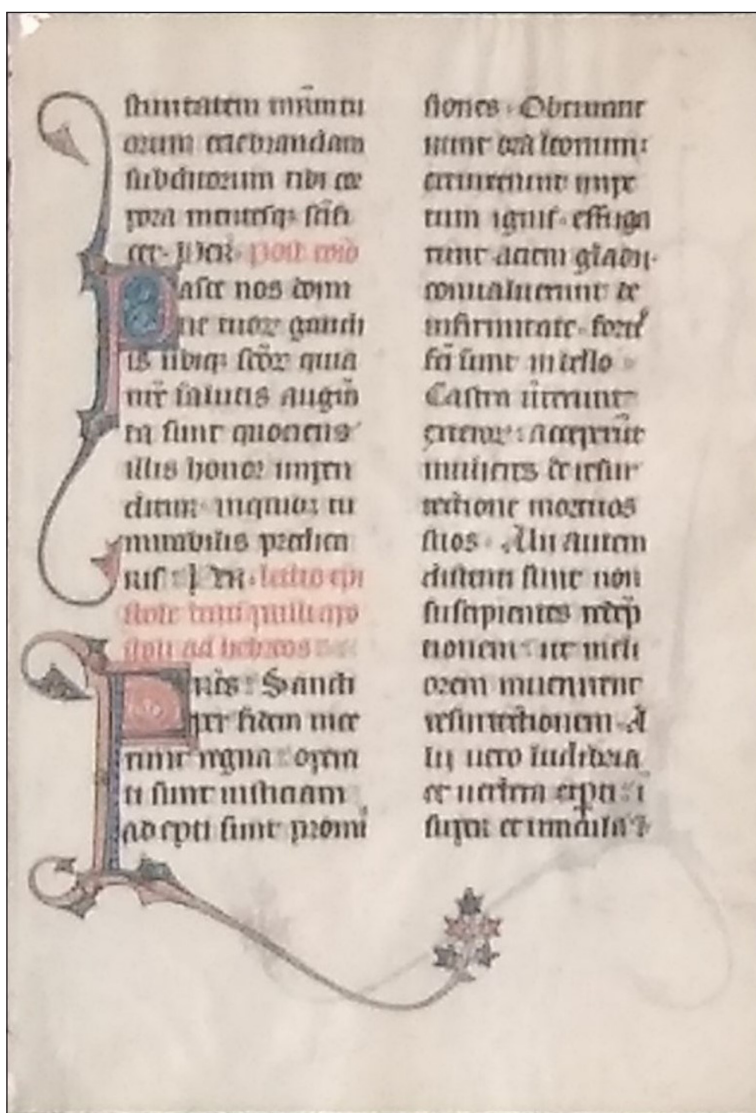 stiuitatem martiru
orum celebrandam
subditorum tibi cor
pora mentesq; scifi
cet. Per. post com
Pasce nos domi
ne tuoꝝ gaudi
is ubiq; scoꝝ quia
nre salutis augm
ta sunt quociens
illis honor impen
ditur. in quibꝫ tu
mirabilis predica
ris. Per. lectio epi
stole beati pauli apo
stoli ad hebreos
Fratres. Sancti
per fidem uice
runt regna. opera
ti sunt iusticiam
adepti sunt promi
siones. Obturaue
runt ora leonum.
extinxerunt impe
tum ignis. effuga
runt aciem gladii.
conualuerunt de
infirmitate. fortes
fci sunt in bello
Castra uterunt
exteroꝝ. acceperut
mulieres de resur
rectione mortuos
suos. Alii autem
distenti sunt non
suscipientes redep
tionem. ut meli
orem inuenirent
resurrectionem. A
lii uero ludibria
et uerbera expti. i
super et uincula &